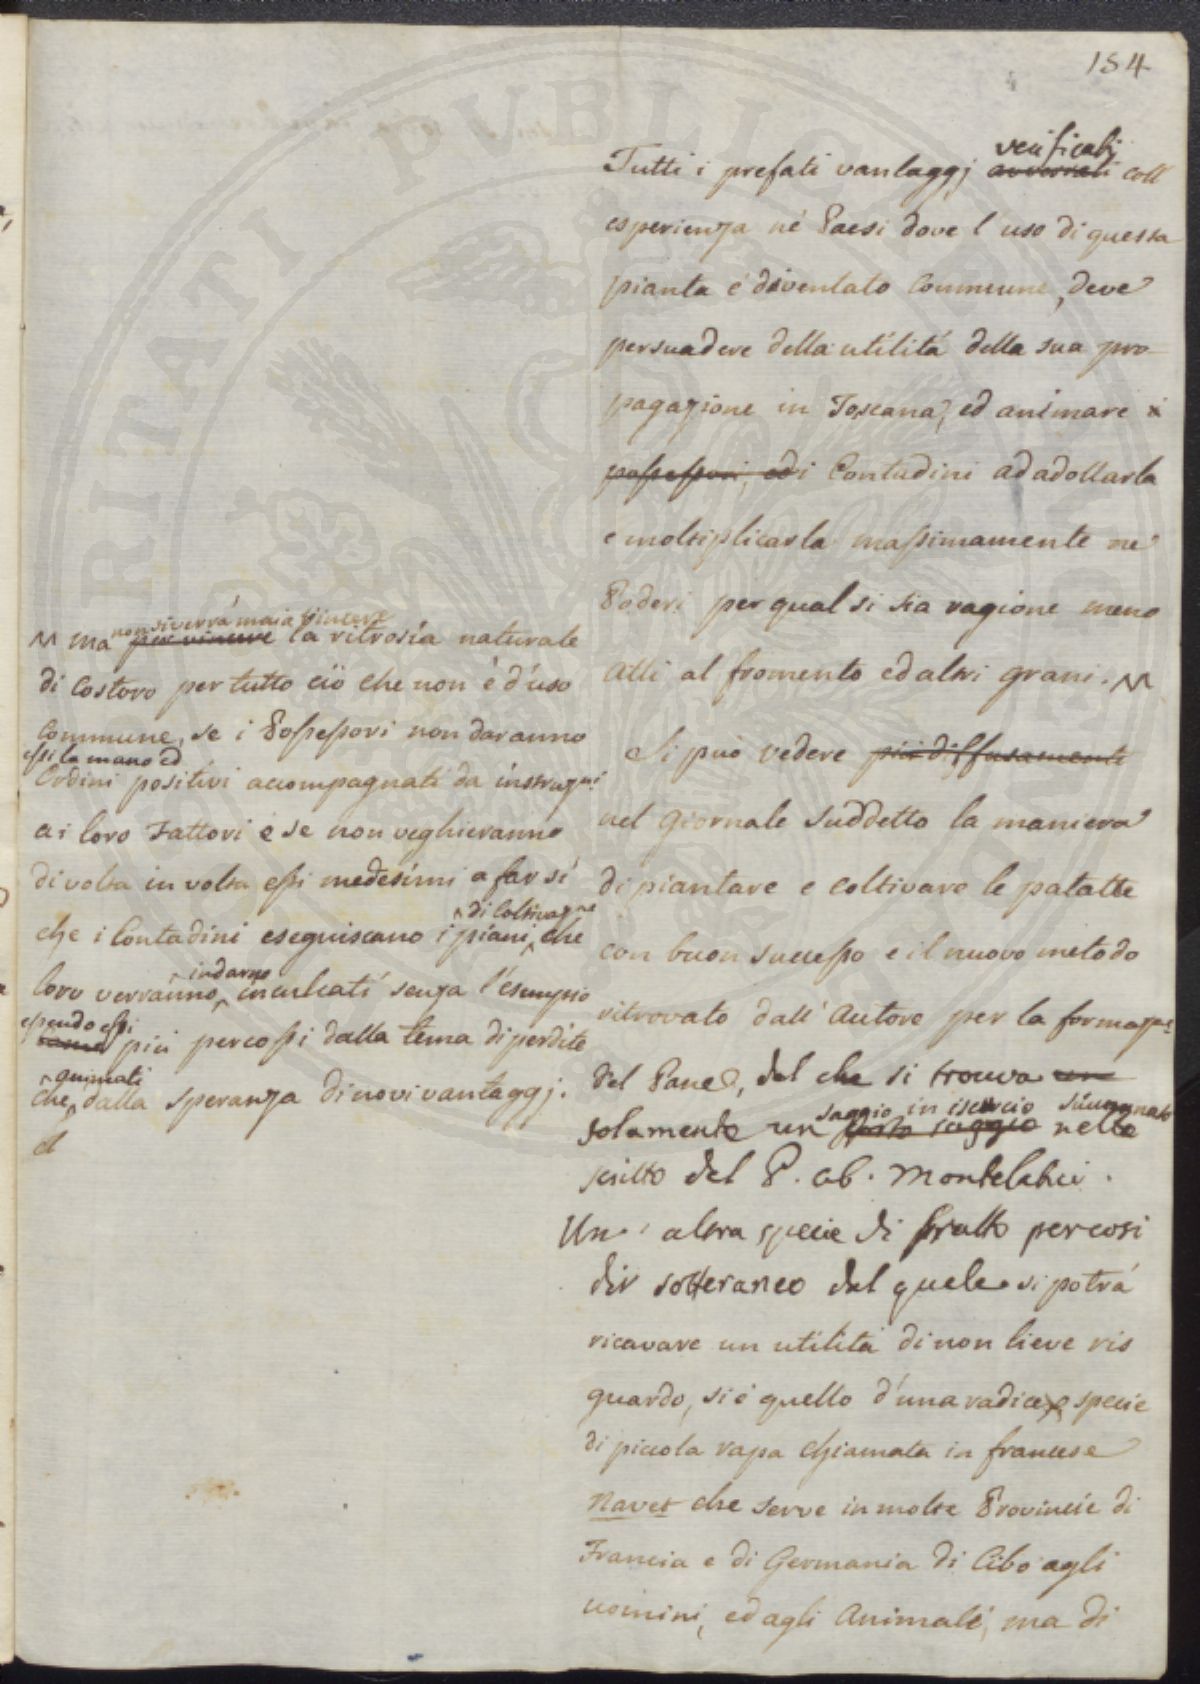 184
Tutti i prefati vantaggj verificati avverrati coll
esperienza né Paesi dove l'uso di questa
pianta é diventato Commune, deve
persuadere della utilitá della sua pro-
pagazione in Toscana, ed animare i
possessori, ed i Contadini ad adottarla
e moltiplicarla massimamente ne'
Poderi per qual si sia ragione meno
atti al fromento ed altri grani.
Si può vedere più diffusamente
nel Giornale suddetto la maniera
di piantare e coltivare le patatte
con buon successo e il nuovo metodo
ritrovato dall'Autore per la formazne
del Pane, del che si trova un
solamente un saggio in iscorcio nello
scritto del P. ab. Montelatici.
Un'altra specie di frutto per così
dir sotteraneo dal quale si potrá
ricavare un utilitá di non lieve ris
guardo, si é quello d'una radice, o specie
di piccola rapa chiamata in francese
Navet che serve in molte Provincie di
Francia e di Germania di Cibo agli
uomini, ed agli Animali, ma di
ma non si verrá mai a vincere per vincere la ritrosía naturale
di costoro per tutto ció che non é d'uso
Commune, se i Possessori non daranno
essi la mano ed
Ordini positivi accompagnati da instruzni
a i loro Fattori e se non veghieranno
di volta in volta essi medesimi a far sì
che i Contadini eseguiscano i piani di Coltivazne che
loro verranno indarno inculcati senza l'esempio
essendo essi più percossi dalla tema di perdite
che animati dalla speranza di novi vantaggj.